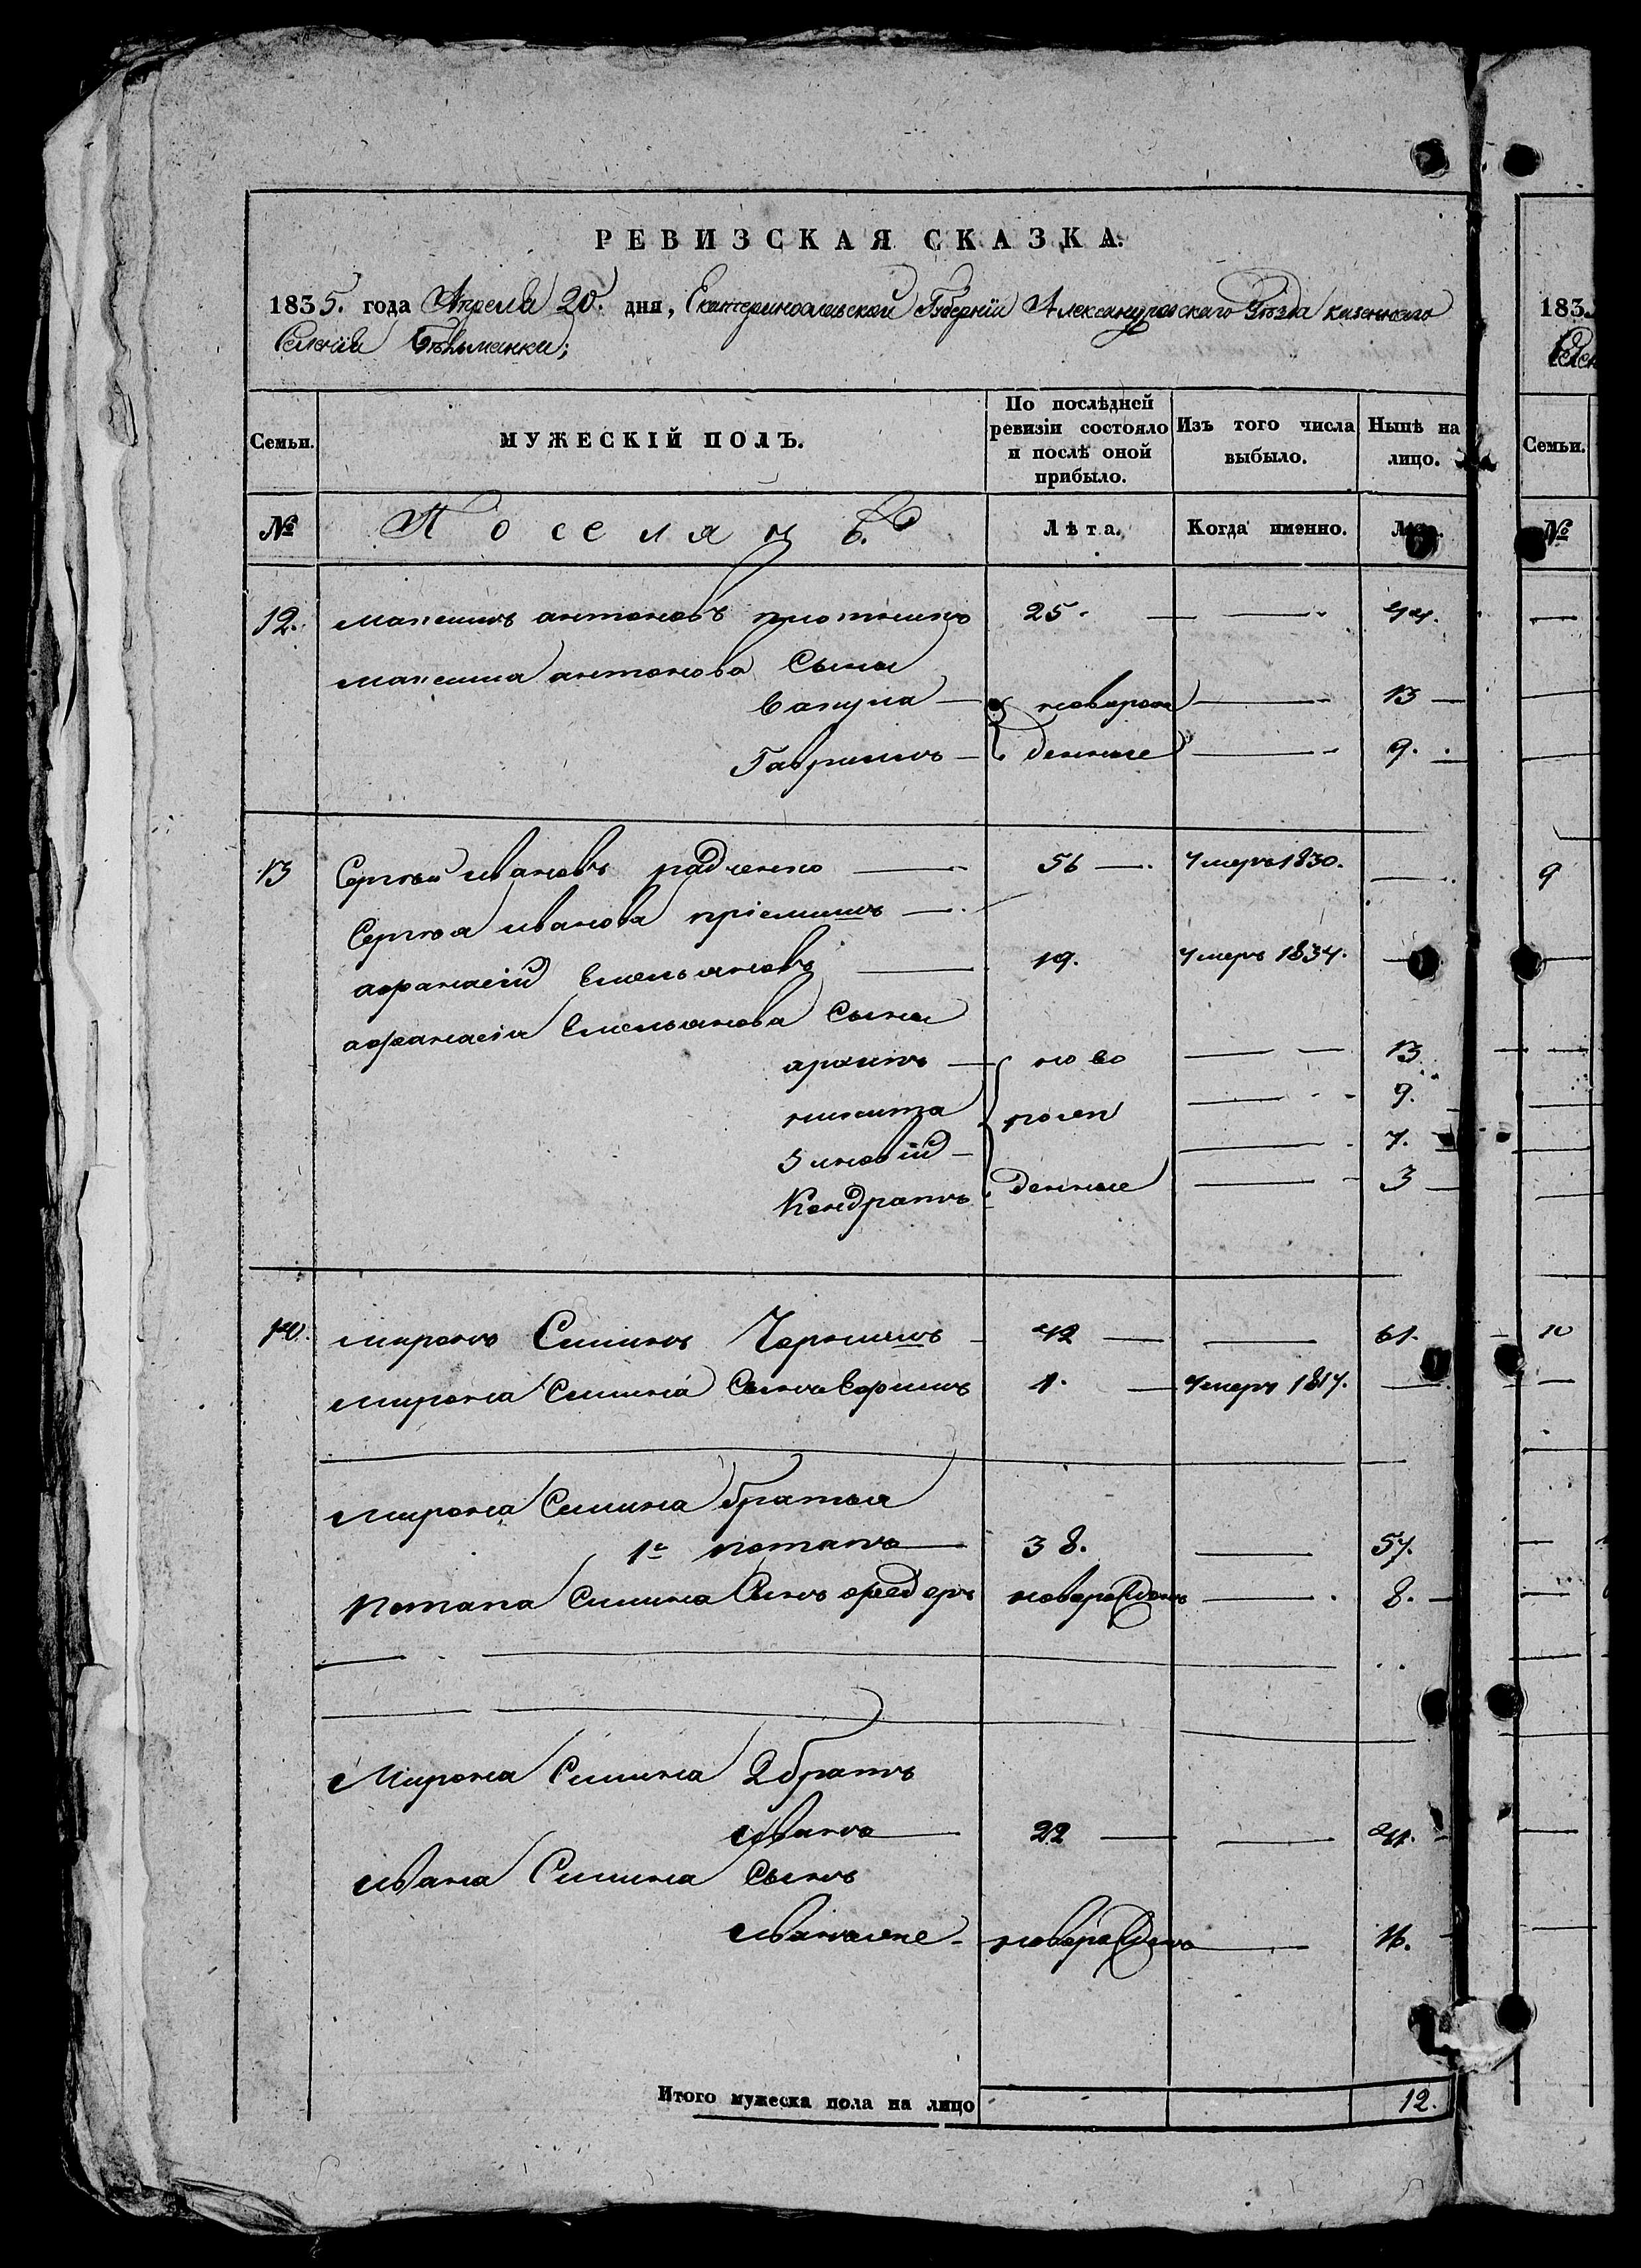 РЕВИЗСКАЯ СКАЗКА.
1835. года Апреля 20. дня, Екатеринославской Губерніи Александровского Уѣзда казенного
Селенія Бѣльманки;
Семьи. МУЖЕСКІЙ ПОЛЪ. По послѣдней ревизіи состояло и послѣ оной прибыло. Изъ того числа выбыло. Нынѣ на лицо.
№ Поселянъ. Лѣта. Когда именно.
12. максимъ антоновъ 25. 44.
максима антонова сыны
вакула новорож 13
Гаврило денные 9.
13 Сергѣй ивановъ радченко 56 умеръ 1830.
Сергѣя иванова пріемышъ
афанасій емельяновъ 19. умеръ 1834.
афанасія емельянова сыны
ново 13
никита рож 9.
зиновій 7.
Кондратъ денные 3
14. миронъ Семинъ Чернышъ 42 61.
мирона Семина сынъ ефимъ 1. умеръ 1817.
мирона Семина братья
1й потапъ 38. 57.
потапа Семина сынъ федоръ новорожденъ 8.
Мирона Семина 2 братъ
иванъ 22 41.
ивана Семина сынъ
новорожденъ 16.
Итого мужеска пола на лицо 12.
183
Семьи.
№
9
10